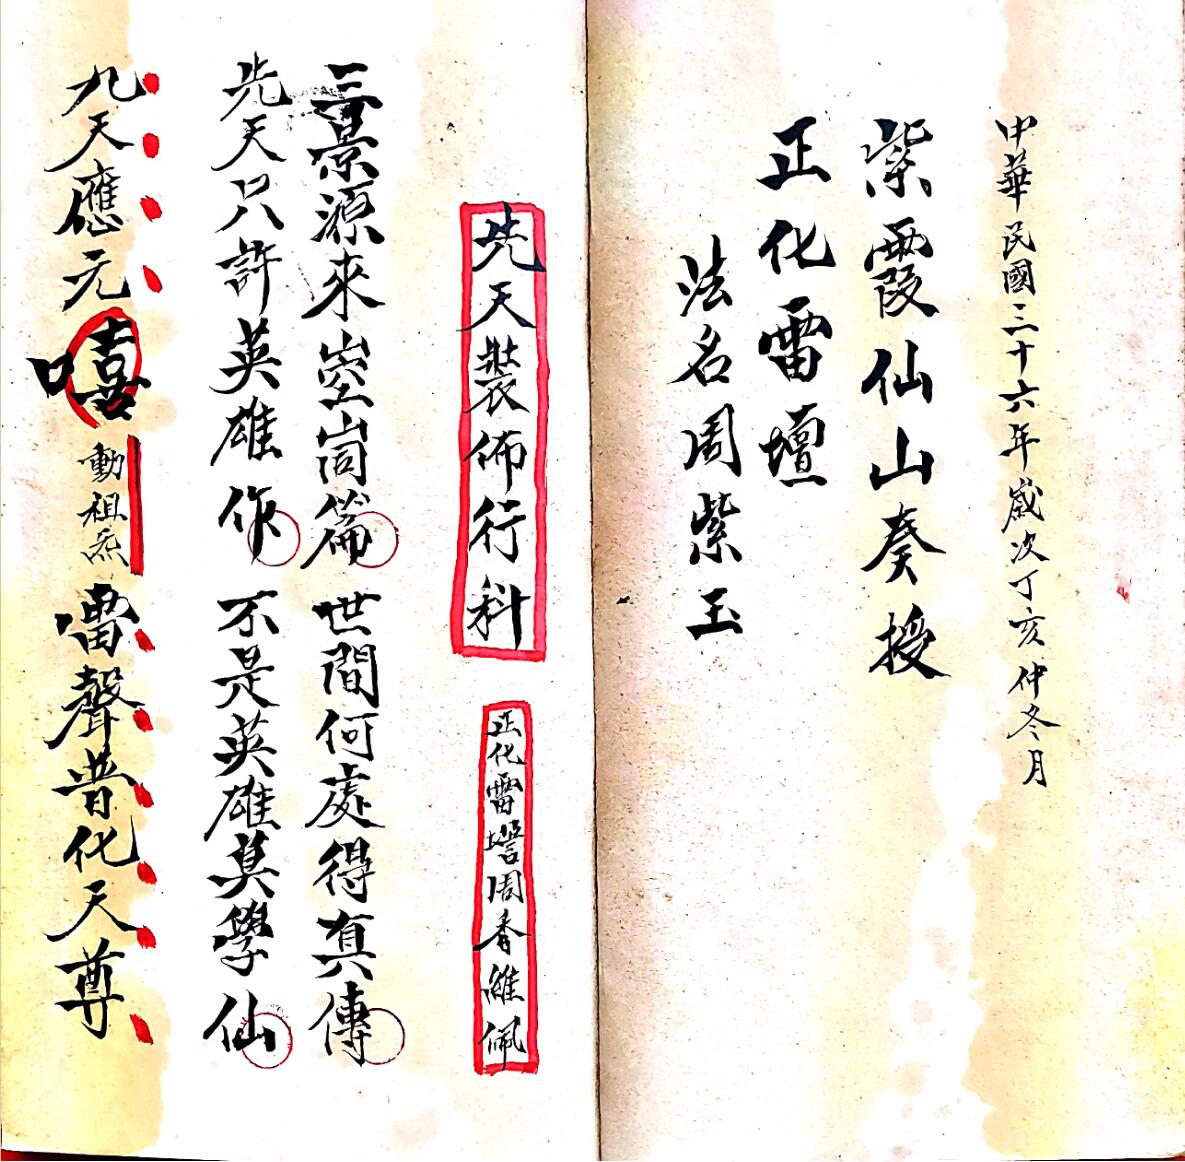 中華民國三十六年歲次丁亥仲冬月
紫霞仙山奏授
正化雷壇
法名周紫玉
先天裝佈行科
正化雷壇周香維佩
三景源來崆峒篇 世間何處得真傳
先天只許英雄作 不是英雄莫學仙
九天應元嘻動祖炁雷聲普化天尊